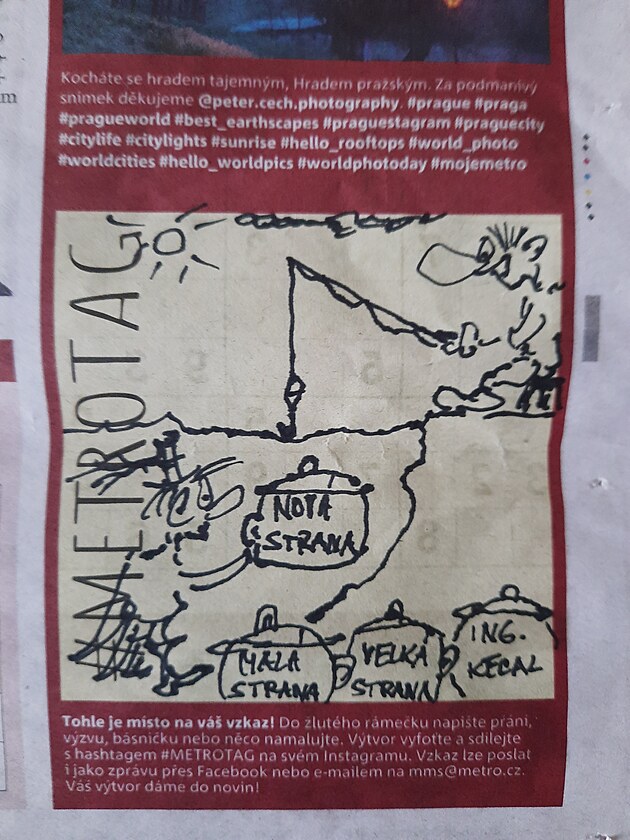 Kocháte se hradem tajemným, Hradem pražským. Za podmanivý
snímek děkujeme @peter.cech.photography. #prague #praga
#pragueworld #best_earthscapes #praguestagram #praguecity
#citylife #citylights #sunrise #hello_rooftops #world_photo
#worldcities #hello_worldpics #worldphotoday #mojemetro
#METROTAG
NOVÁ
STRANA
MALÁ
STRANA
VELKÁ
STRANA
ING.
KECAL
Tohle je místo na váš vzkaz! Do žlutého rámečku napište přání,
výzvu, básničku nebo něco namalujte. Výtvor vyfoťte a sdílejte
s hashtagem #METROTAG na svém Instagramu. Vzkaz lze poslat
i jako zprávu přes Facebook nebo e-mailem na mms@metro.cz.
Váš výtvor dáme do novin!